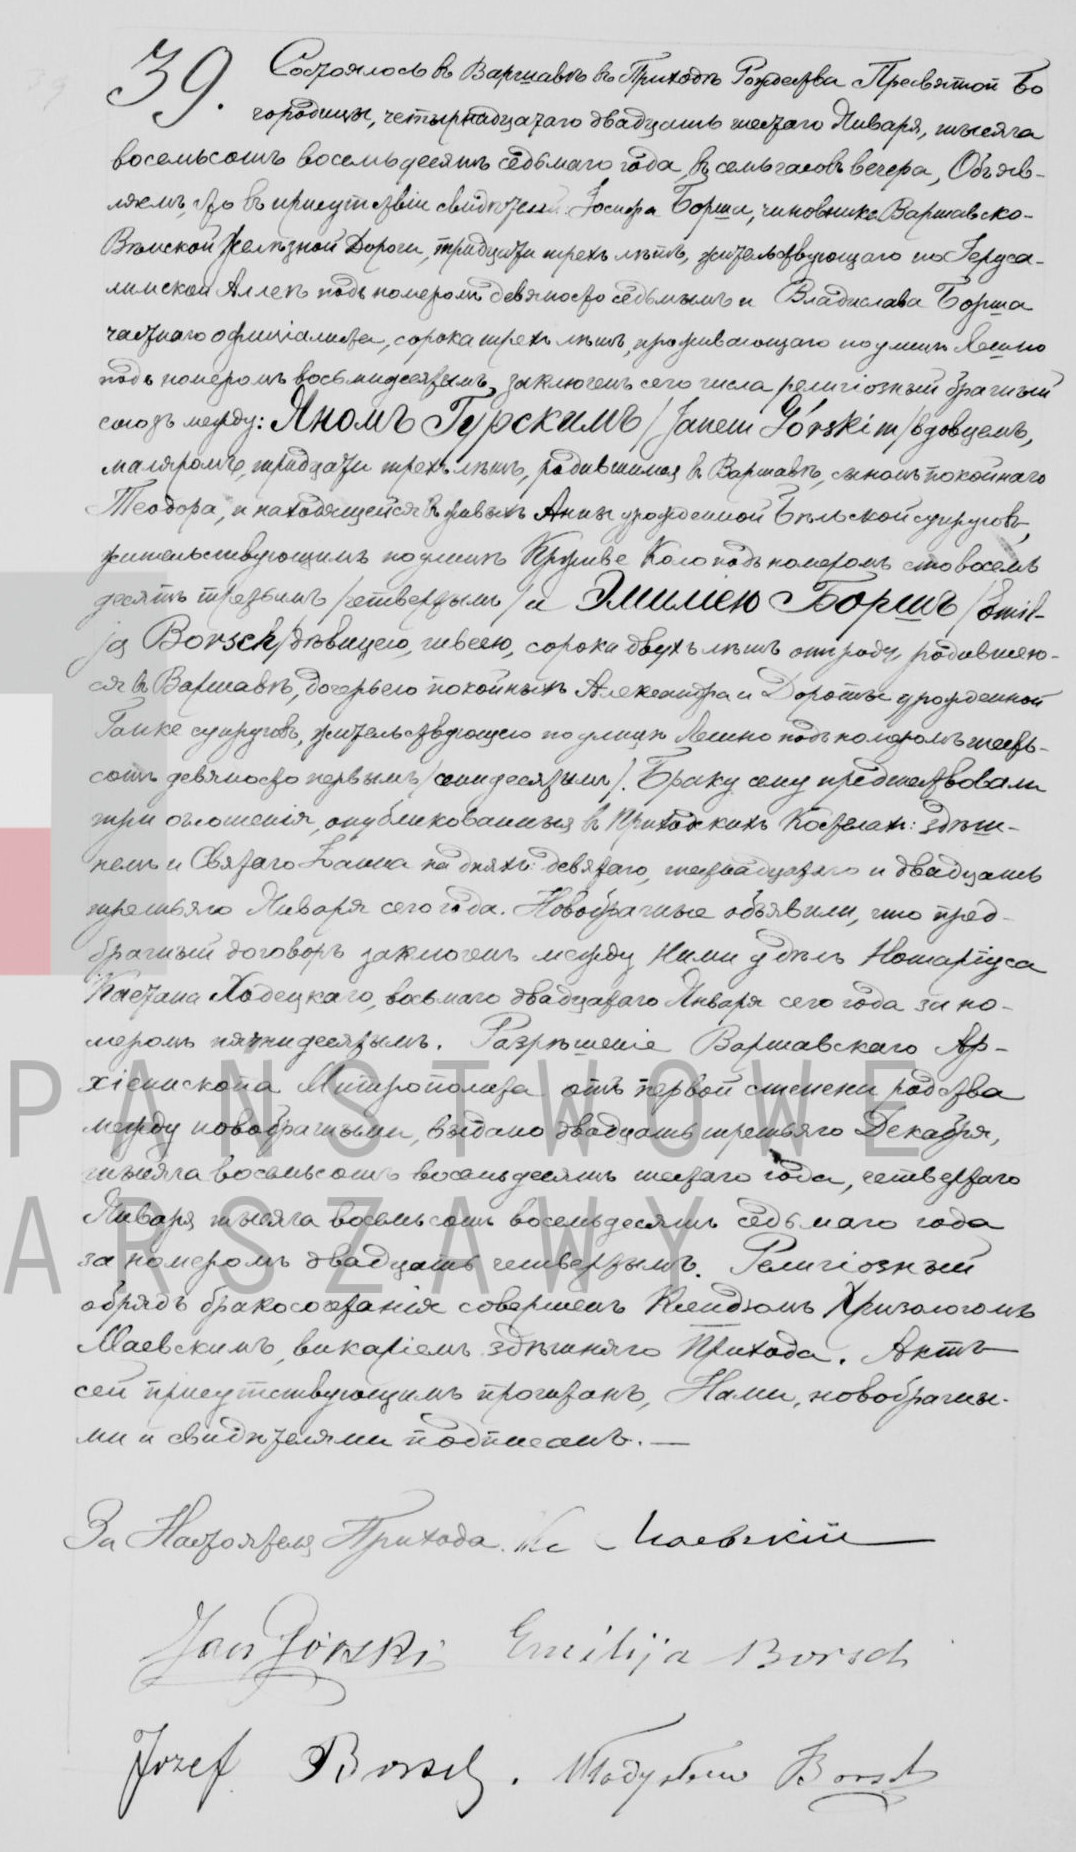 39.
Состоялось въ Варшавѣ въ Приходѣ Рождества Пресвятой Бо
городицы, четырнадцатаго двадцать шестаго Января, тысяча
восемьсотъ восемьдесятъ седьмаго года, въ семь часовъ вечера, Объяв-
ляемъ, что въ присутствіи свидѣтелей Іосифа Борша, чиновника Варшавско-
Вѣнской Желѣзной Дороги, тридцати трехъ лѣтъ, жительствующаго по Іеруса-
лимской Аллеѣ подъ номеромъ девяносто седьмымъ и Владислава Борша
частнаго официалиста, сорока трехъ лѣтъ, проживающаго по улицѣ Лешно
подъ номеромъ восьмидесятымъ, заключенъ сего числа религіозный брачный
союзъ между: Яномъ Гурскимъ /Janem Górskim/ вдовцемъ,
маляромъ, тридцати трехъ лѣтъ, родившимся въ Варшавѣ, сыномъ покойнаго
Теодора, и находящейся въ живыхъ Анны урожденной Бѣльской супруговъ,
жительствующимъ по улицѣ Кривое Коло подъ номеромъ сто восемь
десятъ третьимъ /четвертымъ/ и Эмиліею Боршъ /Emil-
ją Borsch/ дѣвицею, швеею, сорока двухъ лѣтъ отъ роду, родившею-
ся въ Варшавѣ, дочерью покойныхъ Александра и Дороты урожденной
Ганке супруговъ, жительствующею по улицѣ Лешно подъ номеромъ шесть-
сотъ девяносто первымъ /семидесятымъ/. Браку сему предшествовали
три оглошенія, опубликованныя въ Приходскихъ Костелахъ: здѣш-
немъ и Святаго Яна на дняхъ: девятаго, шестнадцатаго и двадцать
третьяго Января сего года. Новобрачные объявили, что пред-
брачный договоръ заключенъ между ними у дѣлъ Нотаріуса
Каетана Ходецкаго, восьмаго двадцатаго Января сего года за но-
меромъ пятидесятымъ. Разрѣшеніе Варшавскаго Ар-
хіепископа Митрополита отъ первой степени родства
между новобрачными, выдано двадцать третьяго Декабря,
тысяча восемьсотъ восемьдесятъ шестаго года, четвертаго
Января тысяча восемьсотъ восемьдесятъ седьмаго года
за номеромъ двадцать четвертымъ. Религіозный
обрядъ бракосочетанія совершенъ Ксендзомъ Хризологомъ
Маевскимъ, викаріемъ здѣшняго Прихода. Актъ
сей присутствующимъ прочитанъ, Нами, новобрачны-
ми и свидѣтелями подписанъ. —
За Настоятеля Прихода Кс Маевскій
Jan Górski Emilija Borsch
Jozef Borsch. Władysław Borsch
PAŃSTWOWE
ARSZAWY